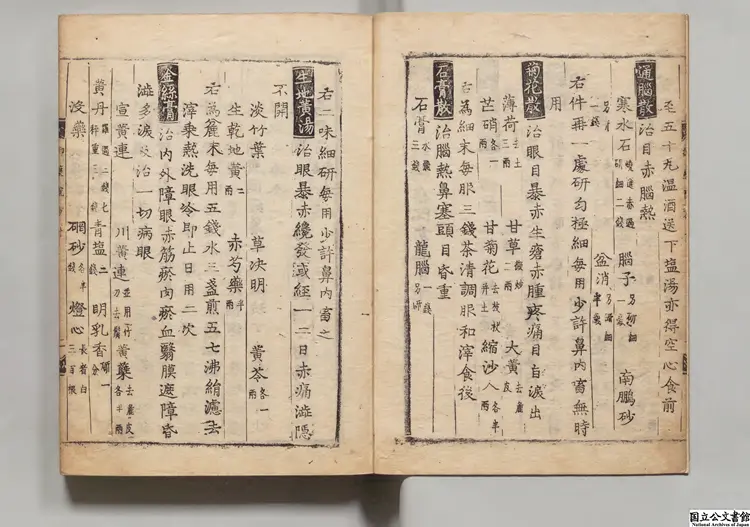 至五十丸温酒送下塩湯亦得空心食前
通腦散 治目赤腦熱
寒水石 腦子 南鵬砂
一錢 盆消
右件再一處研勻極細每用少許鼻內畜無時
用
菊花散 治眼目暴赤生瘡赤腫疼痛目自淚出
薄荷 甘草 大黃
芒硝 甘菊花 縮沙
右為細末每服三錢茶清調服和滓食後
石膏散 治腦熱鼻塞頭目昏重
石膏 龍腦 一錢
右二味細研每用少許鼻內畜之
生地黃湯 治眼暴赤纔發減經一二日赤痛澁隠
不開
淡竹葉 草决明 黃芩 各一兩
生乾地黃 二兩 赤芍藥 半兩
右為麄末每用五錢水三盞煎五七沸絹濾去
滓乘熱洗眼冷即止日用二次
金絲膏 治内外障眼赤筋瘀肉瘀血翳膜遮障昏
澁多淚及治一切病眼
宣黃連 川黃連 黃蘗
黃丹 青塩 明乳香
沒藥 硇砂 燈心 三百根
国立公文書館
National Archives of Japan